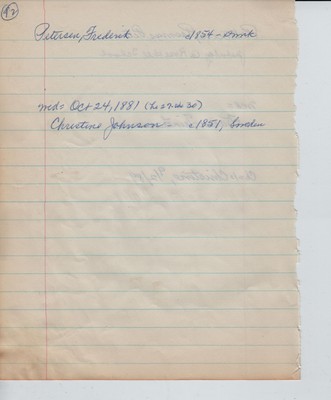 Petersen, Frederik c1854 - Dnmk
md= Oct 24, 1881 (he 27 she 30)
Christine Johnson c1851, Sweden